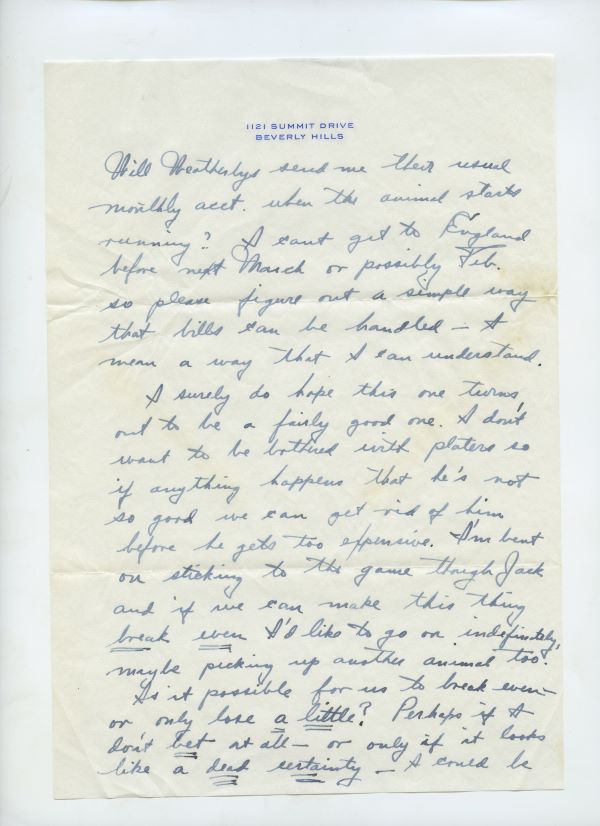 1121 SUMMIT DRIVE
BEVERLY HILLS
Will Weatherbys send me their usual
monthly acct. when the animal starts
running? I cant get to England
before next March or possibly Feb.
so please figure out a simple way
that bills can be handled — I
mean a way that I can understand.
I surely do hope this one turns
out to be a fairly good one. I don't
want to be bothered with platers so
if anything happens that he's not
so good we can get rid of him
before he gets too expensive. I'm bent
on sticking to the game though Jack
and if we can make this thing
break even I'd like to go on indefinately,
maybe picking up another animal too.
Is it possible for us to break even—
or only lose a little? Perhaps if I
don't bet at all — or only if it looks
like a dead certainty — I could be